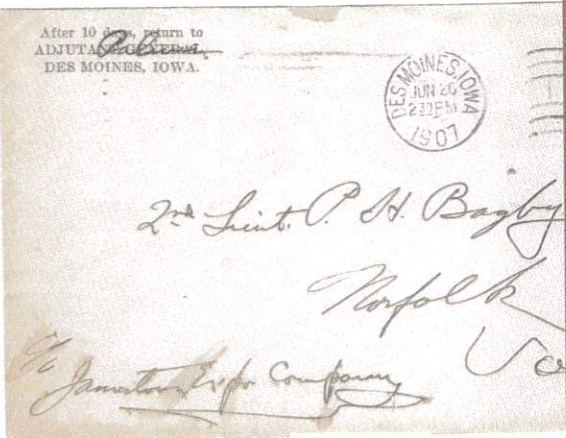 After 10 days, return to
ADJUTANT GENERAL,
DES MOINES, IOWA.
DES MOINES, IOWA
JUN 26
230PM
1907
2nd Lieut. P. H. Bagby
Norfolk
Va
c/o
Jamestown Expo Company